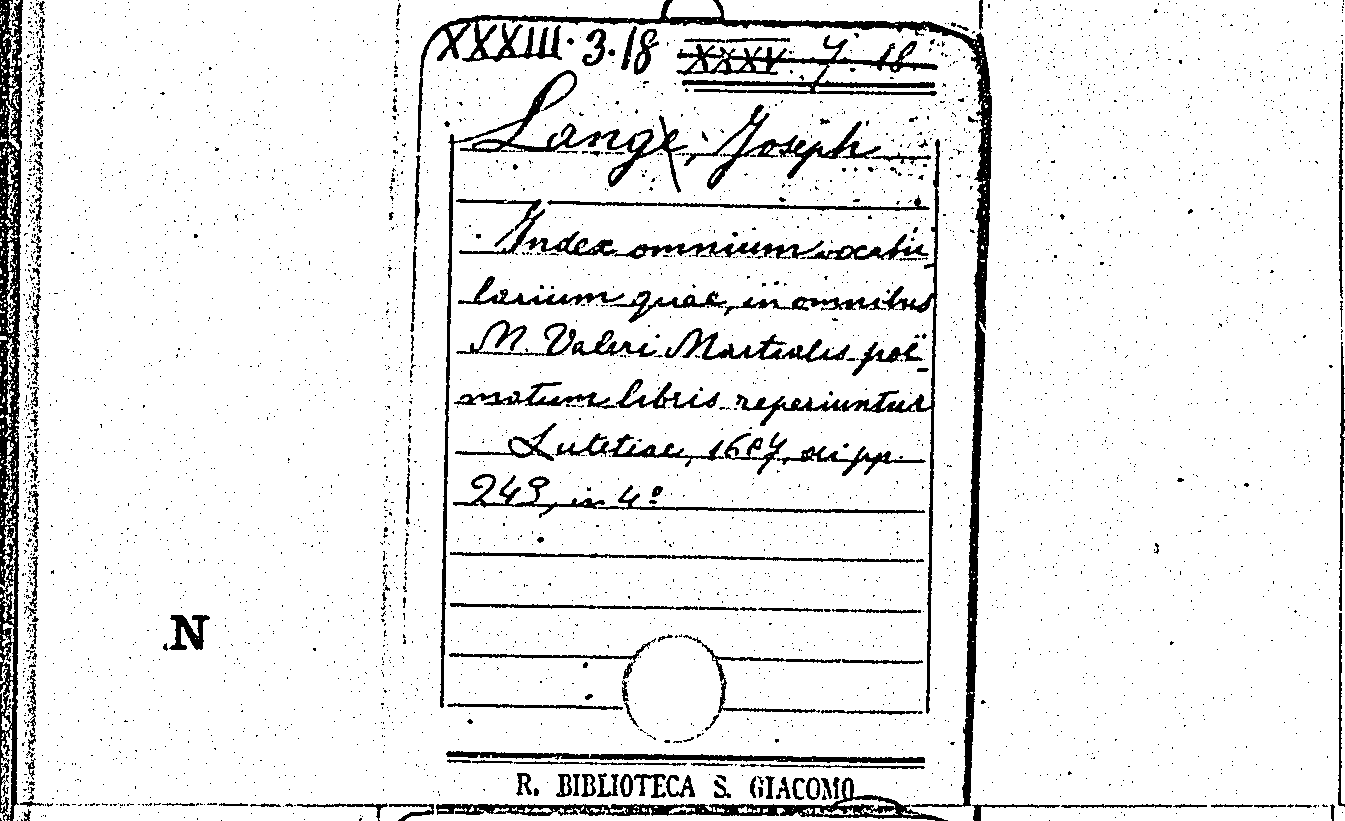 XXXIII. 3. 18 XXXV 7. 18
Lange, Joseph
Index omnium vocabu-
larium quae, in omnibus
M. Valeri Martialis poë-
matum libris reperiuntur
Lutetiae, 1607, di pp.
249, in 4º
N
R. BIBLIOTECA S. GIACOMO